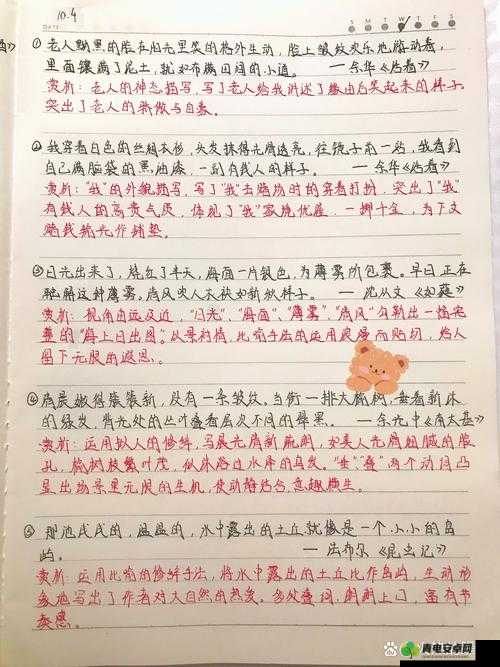 10.4
DATE:
S M T W T F S
①老人黝黑的脸在阳光里笑的格外生动,脸上皱纹欢乐地游动着,
里面镶满了泥土,就如布满田间的小道。 ——余华《活着》
赏析:老人的神态描写,写了老人给我讲述了缘由后笑起来的样子
突出了老人的骄傲与自豪。
②我穿着白色的丝绸衣衫,头发抹得光滑透亮,往镜子前一站,我看到
自己满脑袋的黑油漆,一副有钱人的样子。 ——余华《活着》
赏析:"我"的外貌描写,写了"我"去赌场时的穿着打扮,突出了"我"
有钱人的高贵气质,体现了"我"家境优渥,一掷千金,为下文
赌钱输光作铺垫。
③日光出来了,烧红了半天,海面一片银色,为薄雾所包裹。早日正在
融解这种薄雾。清风吹人衣袂如新秋样子。 ——沈从文《如蕤》
赏析:视角由远及近,"日光"、"海面"、"薄雾"、"清风"勾勒出一幅完
整的"海上日出图"。以景衬情,比喻手法的运用浪漫而贴切,给人
留下无限的遐思。
④满庭嫩得簇簇新,没有一条皱纹。当街一排大榆树,垂着新沐
的绿发,背光处的丛叶叠着层次不同的绿黑。 ——余光中《南太基》
赏析:运用拟人的修辞,写晨光清新脆朗,如美人光滑细腻的脸
孔,榆树枝繁叶茂,似沐浴过水库的乌发。"垂"、"叠"两个动词凸
显出场景里无限的生机,使动静结合,意趣横生。
⑤那池浅浅的,温温的,水中露出的土丘就像是一个小小的岛
屿。 ——法布尔《昆虫记》
赏析:运用比喻的修辞手法,将水中露出的土丘比作岛屿,生动形
象地写出了作者对大自然的热爱。多处叠词,朗朗上口,富有节
奏感。
青电安卓网